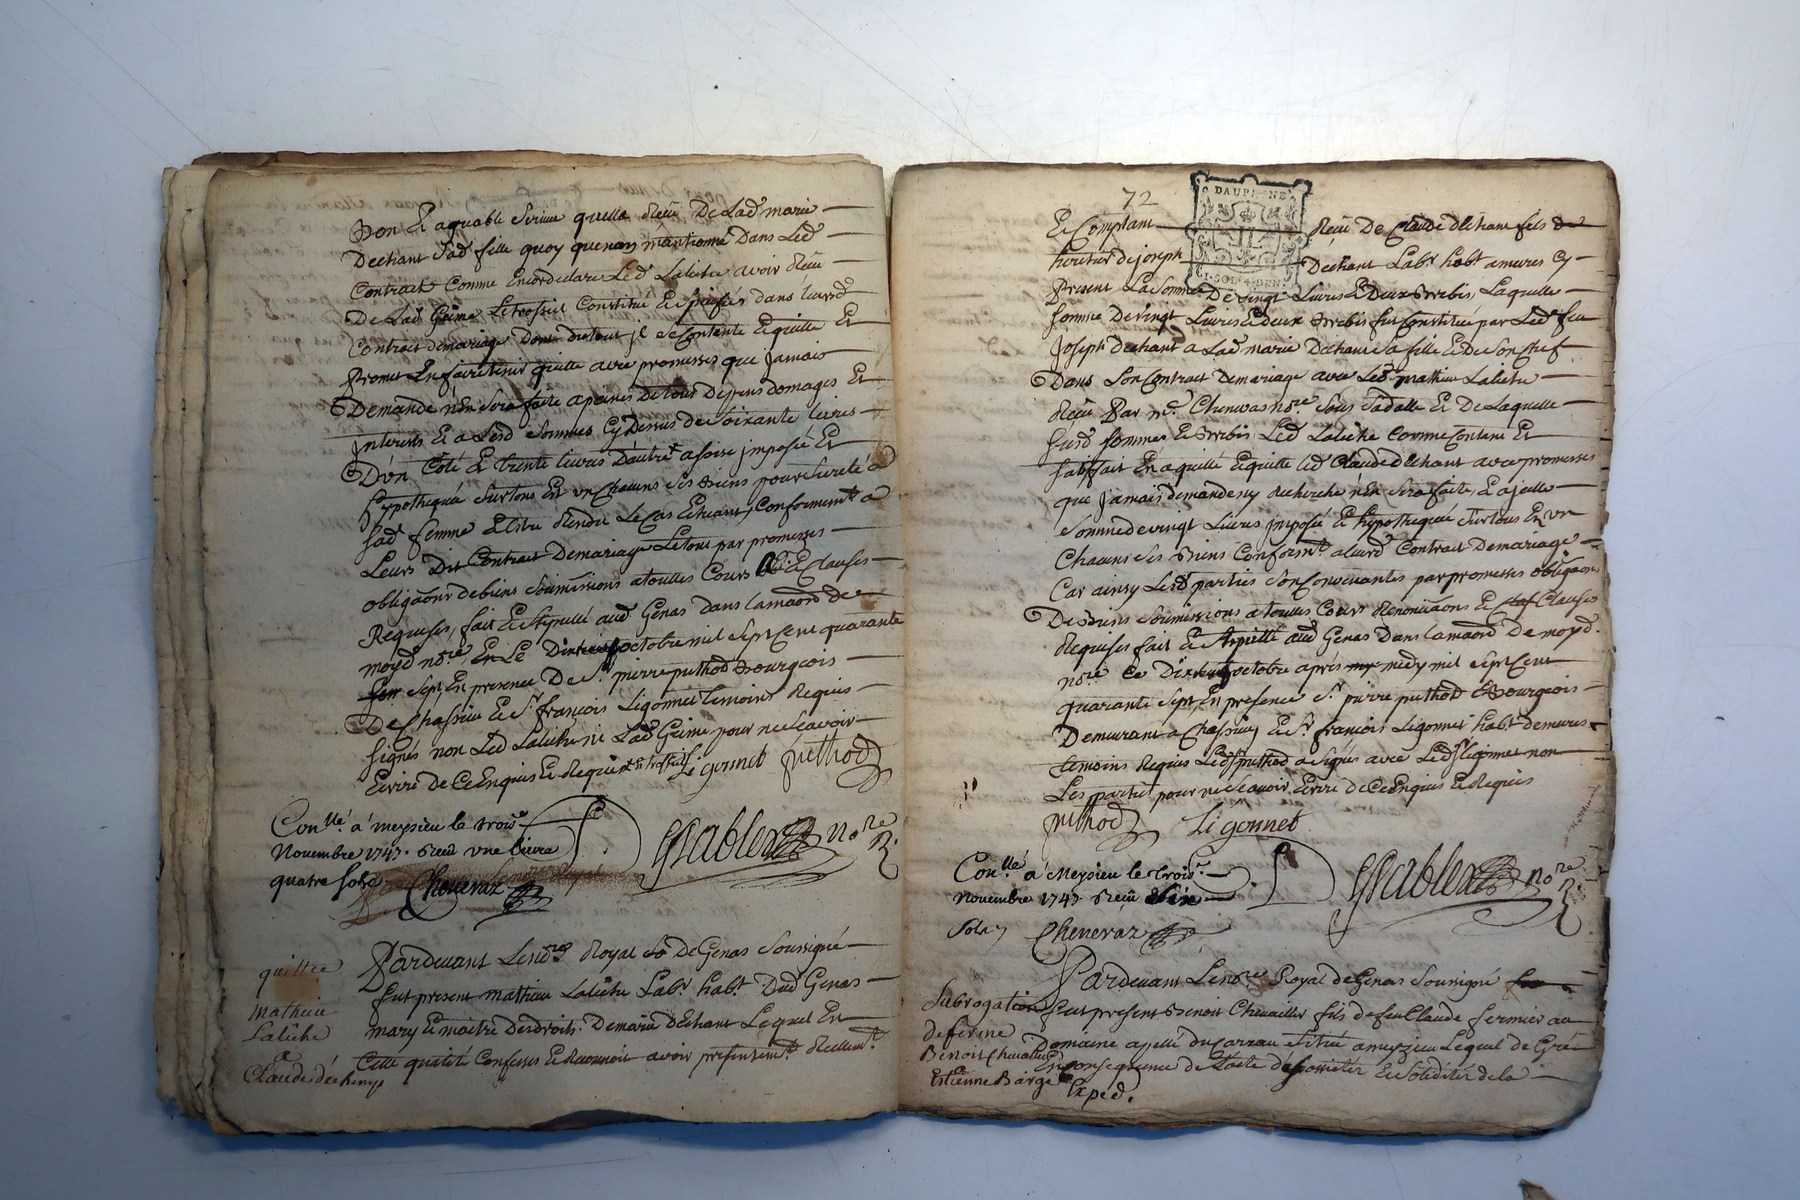 bon et aguable serime quelle Reçu De Lad marie
Dechant Sad fille quoy quenony mantionné Dans Led
Contract Comme Encordeclare Led Laliche avoir Reçu
De Lad Grime Letrossel Constitué Et dans leursd
Contract demariage Dont dutout il se Contente Equitte Et
Promet En faire tenir quitte avec promesses que jamais
Demande n'En Sera faite apeines De tous Depens domages Et
Interests Et a Lesd Sommes Cy Dessus De Soixante livres
D'un Coté Et trente livres D'autre assoise imposée Et
hypothequée Surtous Et un Chacuns Ses Biens pour Sureté a
Sad femme Et Rendu Le Cas Echeant, Conformemt a
Leurs Dit Contract Demariage Letout par promesses
obligaons debiens Soumissions a touttes Cours Et Clauses
Requises, fait Et Stipullé aud Genas Dans lamaon de
moyd nore, En Le octobre mil Sept Cent quarante
Sept, En presence De Sr pierre puthod Bourgeois
De Chassieu Et Sr françois Ligonnet temoins Requis
Signés non Led Laliche ni Lad Grime pour ne Scavoir
Ecrire de Ce Enquis Et Requis Ligonnet puthod
Conllé a meysieu le trois
Novembre 1747. Receu une livre
quatre Sols Cheneraz nore
quittce
Mathieu
Laliche
a
Claude dechenp
Pardevant Lenore Royal De Genas Soussigné
fut present mathieu Laliche Labr habt Dud Genas
mary Et maitre Desdroits De marie dEchant Lequel En
Cette qualité Confesse Et Reconnoit avoir presentemt Reellemt
72
DAUPHINE
SOL 4 DEN
Et Comptant Reçu De Claude dEchant fils
heritier de joseph Dechant Labr habt amures Cy
Present La Somme De vingt Livres Et Deux Brebis, Laquelle
Somme De vingt Livres Et deux Brebis fut Constituée par Led feu
Joseph dechant a Lad marie Dechant Sa fille Et De Son Chef
Dans Son Contract Demariage avec Led mathieu Laliche
Reçu Par me nore Sous Sadatte Et De Laquelle
Susd Somme Et Brebis Led Laliche Comme Content Et
Satisfait En a quitté Equitte led Claude dEchant avec promesses
que jamais demande ny Recherche n'En Sera faite, Laquelle
Somme de vingt Livres imposée Et hypothequée Surtous Et un
Chacuns Ses Biens Conformt a leurd Contract Demariage
Car ainsy Lesd parties Son Convenantes par promesses obligaons
De Biens Soumissions a touttes Cours Renonciaons Et Clauses
Requises fait Et Stipullé aud Genas Dans lamaon De moyd
nore Ce octobre après medy mil Sept Cent
quarante Sept, En presence Sr pierre puthod Bourgeois
Demeurant a Chassieu Et Sr françois Ligonnet habt demures
temoins Requis Led Sr puthod a Signés avec Led Sr Ligonnet non
Les parties pour ne Scavoir Ecrire de Ce Enquis Et Requis
puthod Ligonnet
Conllé a Meysieu le trois
Novembre 1747. Receu
Sols Cheneraz nore
Subrogation
deferme
Benoit Chevallier
Estienne Barge
Pardevant Lenore Royal de Genas Soussigné
fut present Benoit Chevallier fils de feu Claude fermier au
Domaine apellé du Carreau Situé a meyzieu Lequel de Gré
En Consequence de Lacte Et Solidité de la
Exped.